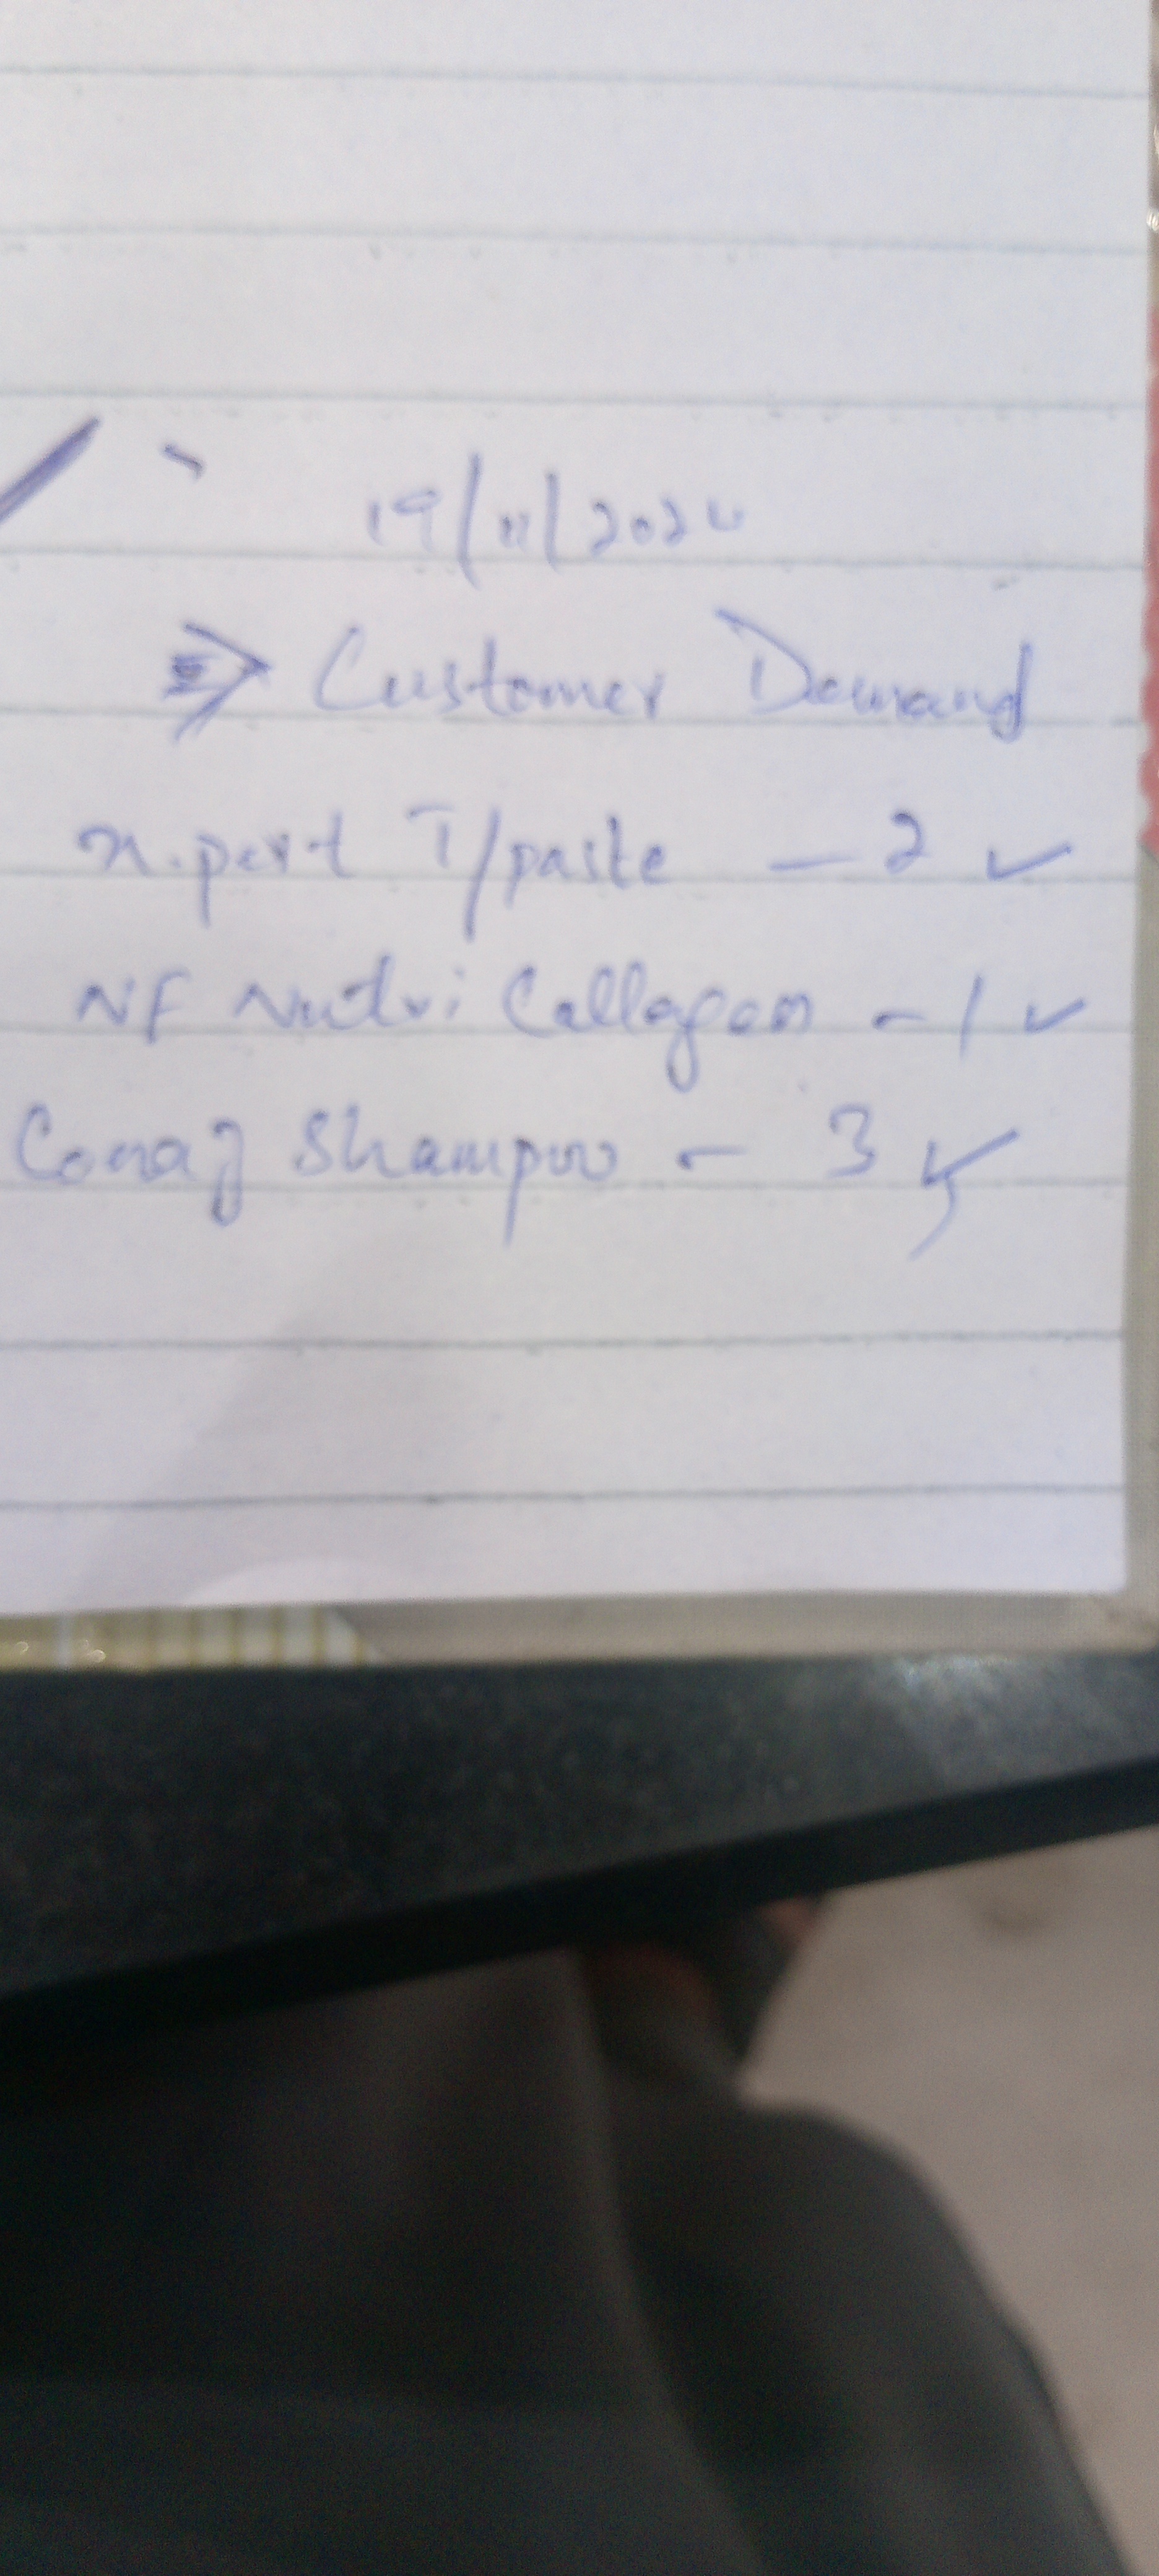 19/11/2024
⇒ Customer Demand
x.pert T/paste — 2 ✓
NF Nutri Collagen - 1 ✓
Conaz Shampoo - 3 ✓